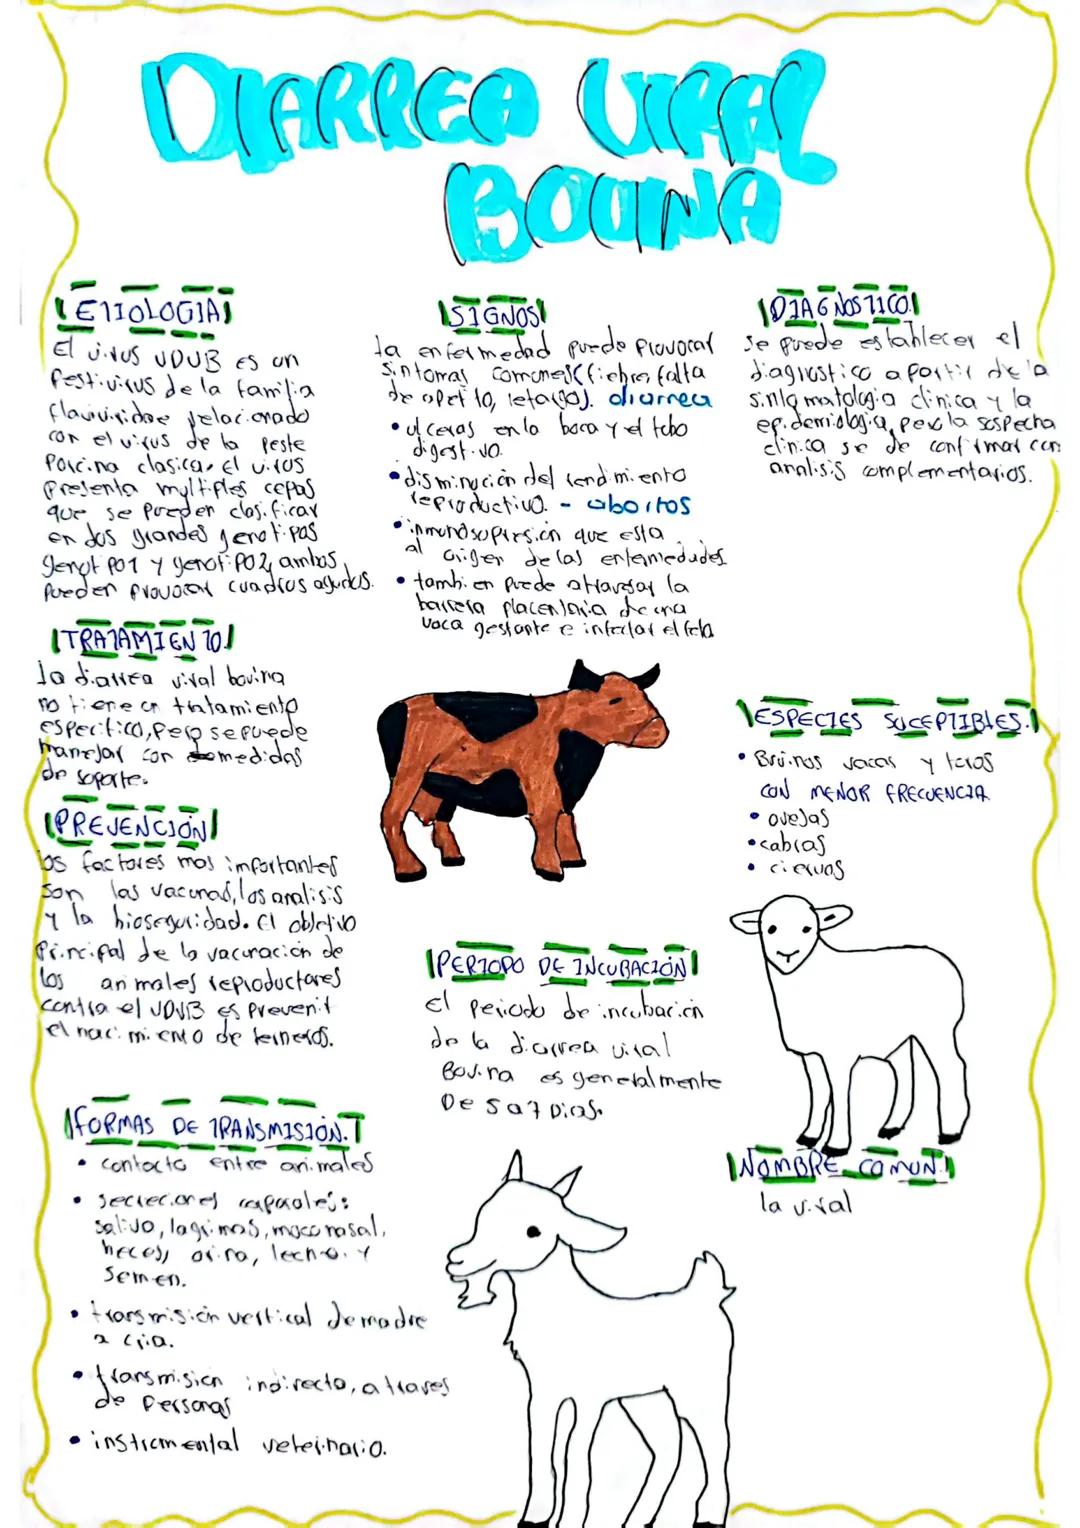 DIARREA VIRAL
BOVINA
ETIOLOGIA
El virus VDVB es un
Pestivirus de la familia
flaviviridae relacionado
con el virus de la Peste
Porcina clasica. El virus
Presenta multiples cepas
que se pueden clasificar
en dos grandes genotipos
genotipo1 y genotipo2, ambos
pueden provocar cuadros agudos.
TRATAMIENTO.
la diarrea viral bovina
no tiene un tratamiento
especifico, Pero se puede
manejar con medidas
de soporte.
PREVENCIÓN
los factores mas importantes
son las vacunas, los analisis
y la bioseguridad. El objetivo
Principal de la vacunación de
los animales reproductores
contra el VDVB es Prevenir
el nacimiento de terneros.
FORMAS DE TRANSMISIÓN.
• contacto entre animales
• secreciones corporales:
saliva, lagrimas, moco nasal,
heces, orina, leche. y
semen.
• transmisión vertical de madre
a cria.
• transmision indirecta, a traves
de Personas
• instrumental veterinario.
SIGNOS
la enfermedad puede Provocar
sintomas comunes (fiebre, falta
de apetito, letargo). diarrea
• ulceras en la boca y el tubo
digestivo.
• disminución del rendimiento
reproductivo. - abortos
• inmunosupresión que esta
al origen de las enfermedades
• tambien puede atravesar la
barrera placentaria de una
vaca gestante e infectar el feto
PERIODO DE INCUBACIÓN
El periodo de incubación
de la diarrea viral
Bovina es generalmente
De 5 a 7 Dias.
DIAGNOSTICO.
se puede establecer el
diagnostico a partir de la
sintomatologia clinica y la
epidemiologia, pero la sospecha
clinica se de confirmar con
analisis complementarios.
ESPECIES SUCEPTIBLES.
• Bovinos vacas y toros
CON MENOR FRECUENCIA
• ovejas
• cabras
• ciervos
NOMBRE COMUN.
la viral